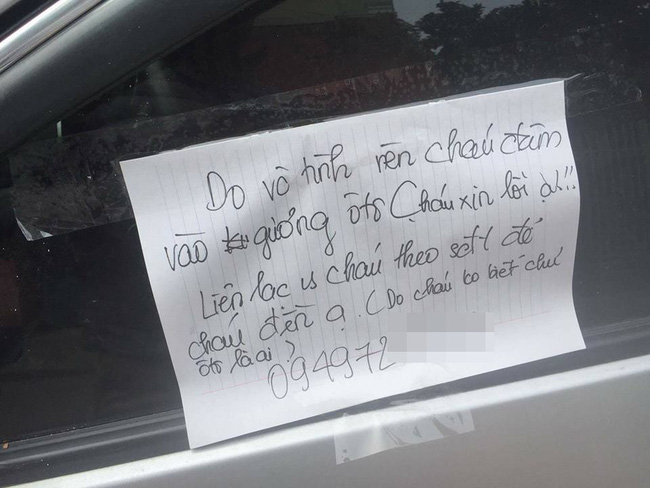 Do vô tình nên cháu đâm
vào gương ôtô Cháu xin lỗi ạ!!
Liên lạc vs cháu theo sđt để
cháu đền ạ. (Do cháu ko biết chủ
ôtô là ai?
094972